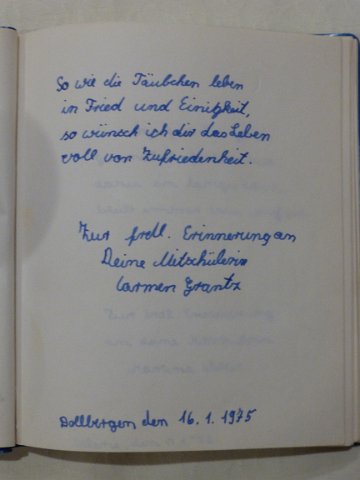 So wie die Täubchen leben
in Fried und Einigkeit,
so wünsch ich dir das Leben
voll von Zufriedenheit.
Zur frdl. Erinnerung an
Deine Mitschülerin
Carmen Grantz
Dollbergen den 16.1.1975